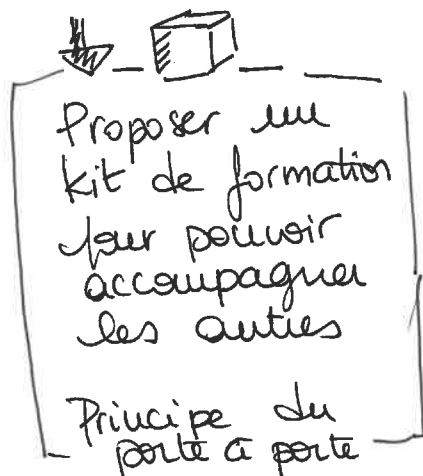 Proposer un
kit de formation
pour pouvoir
accompagner
les autres
Principe du
porte à porte